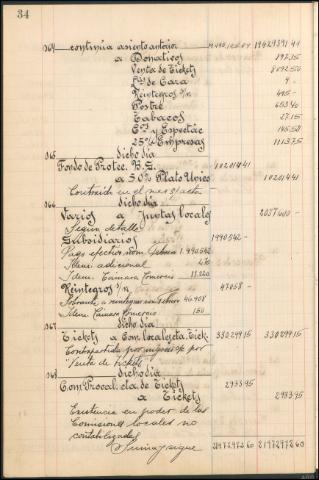 34
364 continúa asiento anterior 19429391 41
a Donativos 197.15
Venta de Tickets
de Cara 9 -
Reintegros s/n 495 -
Postre 653.40
Tabacos 27.15
y Espectác 145.50
25% Empresas 1113.75
365 dicho día
Fondo de Protec. B.S. 10201441
a 50% Plato Único 10201441
Contraído en el mes s/acta -
366 dicho día
Varios a Juntas locales 2037600 -
Según detalle
Subsidiarios 1990542 -
Pago efectivo nom. Febrero 1.990.542
Idem adicional
Idem Cámara Comercio
Reintegros s/n 47058 -
46.908
Idem Cámara Comercio 150
367 dicho día
Tickets a Com. locales, cta. Tick. 33029915 33029915
Contrapartida por
Venta de Tickets
368 dicho día
Com. Procal. cta de Tickets 293395
a Tickets 293395
Existencia en poder de las
Comisiones locales no
contabilizadas
21972972 60 21972972 60